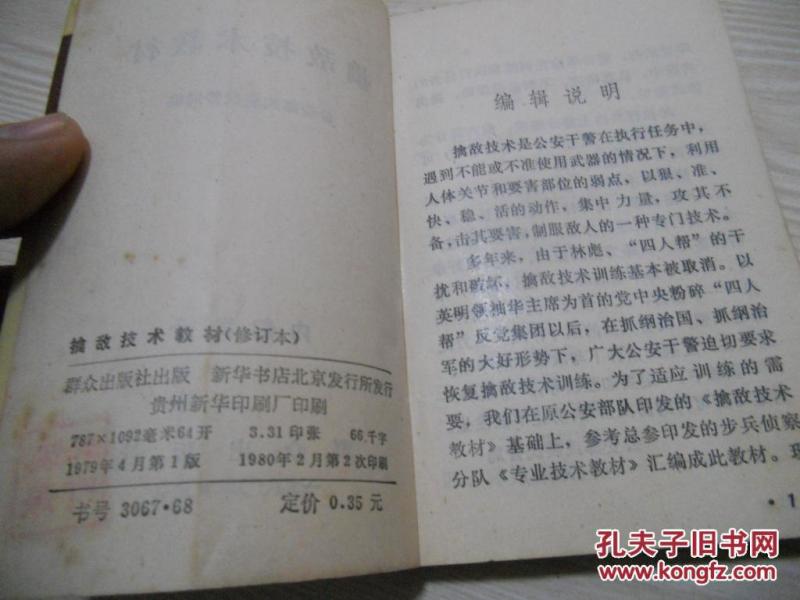 擒敌技术教材(修订本)
群众出版社出版 新华书店北京发行所发行
贵州新华印刷厂印刷
787×1092毫米64开 3.31印张 66千字
1979年4月第1版 1980年2月第2次印刷
书号 3067·68 定价 0.35 元
编辑说明
擒敌技术是公安干警在执行任务中,
遇到不能或不准使用武器的情况下，利用
人体关节和要害部位的弱点、以狠、准、
快、稳、活的动作，集中力量，攻其不
备,击其要害,制服敌人的一种专门技术。
多年来，由于林彪、“四人帮”的干
扰和破坏，擒敌技术训练基本被取消。以
英明领袖华主席为首的党中央粉碎“四人
帮”反党集团以后，在抓纲治国、抓纲治
军的大好形势下，广大公安干警迫切要求
恢复擒敌技术训练。为了适应训练的需
要，我们在原公安部队印发的《擒敌技术
教材》基础上，参考总参印发的步兵侦察
分队《专业技术教材》汇编成此教材。现
·1
孔夫子旧书网
www.kongfz.com